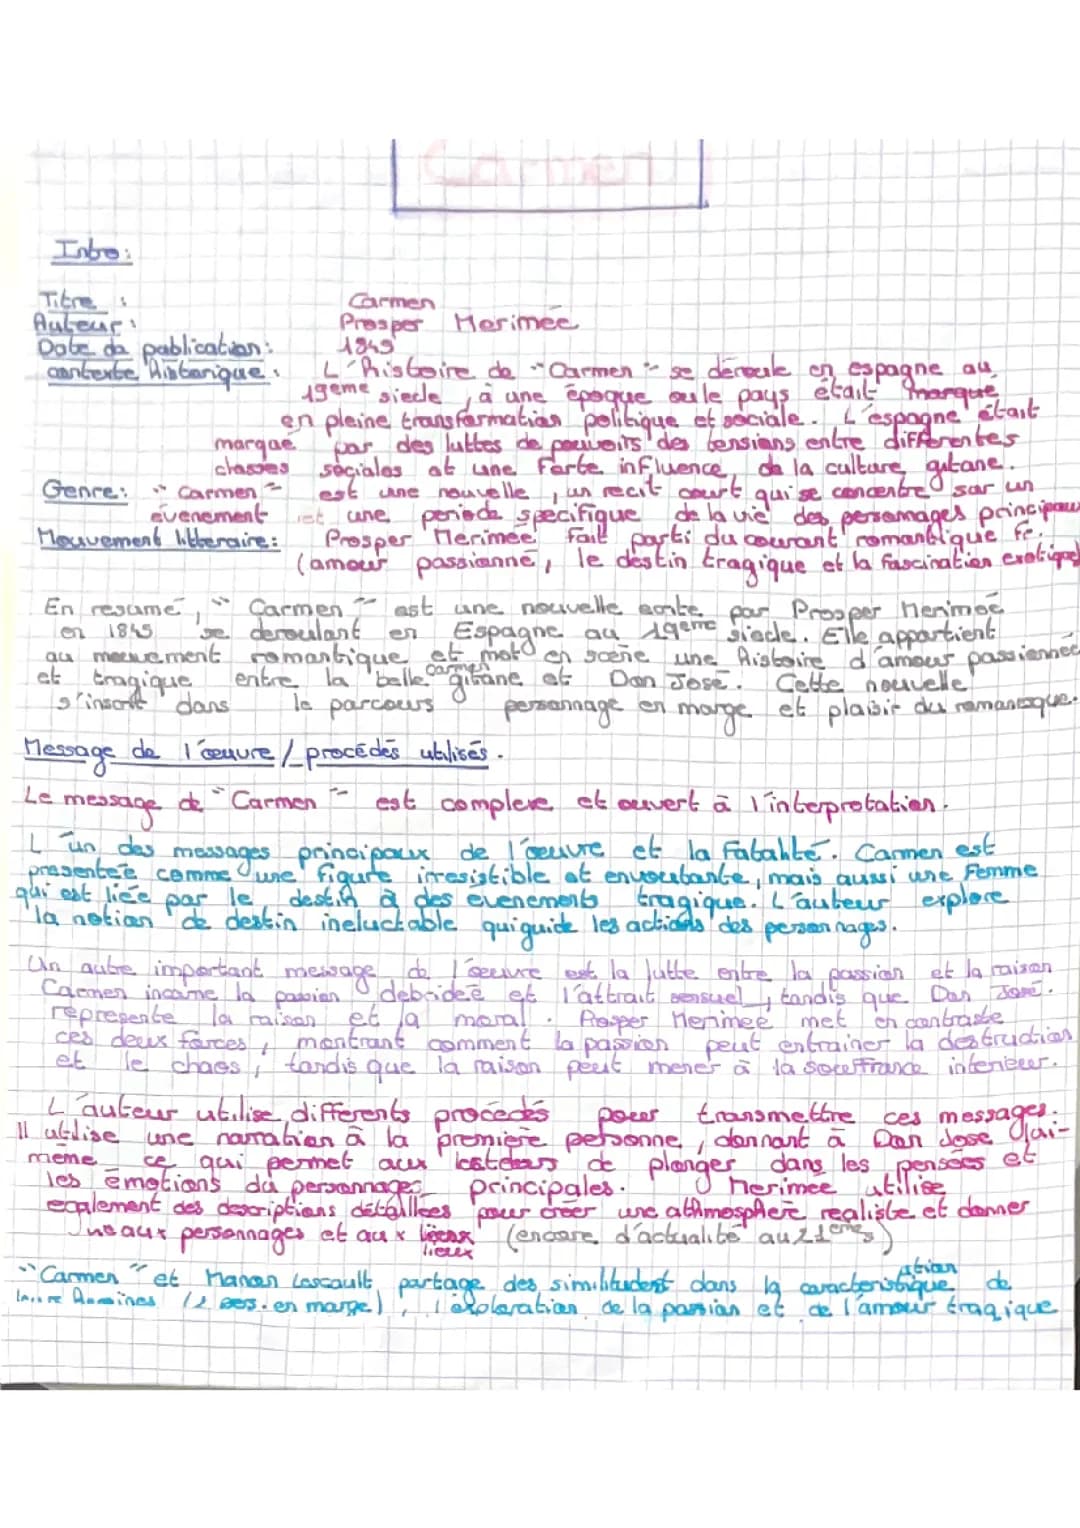 Carmen
Intro:
Titre : Carmen
Auteur : Prosper Merimée
Date da publication : 1845
contexte historique : L'histoire de "Carmen" se déroule en espagne au
19eme siecle, à une époque oule pays était marque
en pleine transformation politique et sociale. L'espagne était
marqué par des luttes de pouvoirs, des tensions entre differentes
classes sociales et une forte influence de la culture gitane.
Genre : "Carmen" est une nouvelle, un recit court qui se concentre sur un
évenement et une periode specifique de la vie des personnages principaux
Mouvement litteraire : Prosper Merimée fait parti du courant romantique fr.
(amour passionné, le destin tragique et la fascination exotique)
En resumé, "Carmen" est une nouvelle ecrite par Prosper Merimée
en 1845 se deroulant en Espagne au 19eme siecle. Elle appartient
au mouvement romantique et met en scène une histoire d'amour passionnée
et tragique entre la belle carmen gitane et Don José. Cette nouvelle
s'inscrit dans le parcours personnage en marge et plaisir du romanesque.
Message de l'œuvre / procédés utilisés.
Le message de "Carmen" est complexe et ouvert à l'interpretation.
L'un des messages principaux de l'œuvre et la fatalité. Carmen est
presentée comme une figure irresistible et envoutante, mais aussi une femme
qui est liée par le destin à des evenements tragique. L'auteur explore
la notion de destin ineluctable qui guide les actions des personnages.
Un autre important message de l'œuvre est la lutte entre la passion et la raison
Carmen incarne la passion debridée et l'attrait sensuel, tandis que Don José.
represente la raison et la moral. Prosper Merimee met en contraste
ces deux forces, montrant comment la passion peut entrainer la destruction
et le chaos, tandis que la raison peut mener à la souffrance interieur.
L'auteur utilise differents procédés pour transmettre ces messages.
Il utilise une narration à la première personne, donnant à Don Jose lui-
meme ce qui permet aux lecteurs de plonger dans les pensées et
les émotions du personnages principales. Merimee utilise
egalement des descriptions détaillées pour créer une athmosphere realiste et donner
aux personnages et aux lieux (encore d'actualité au 21emes)
"Carmen" et Manon Lescault partage des similitudest dans la caracteristique de
(2 pers. en marge), l'exploration de la passion et de l'amour tragique